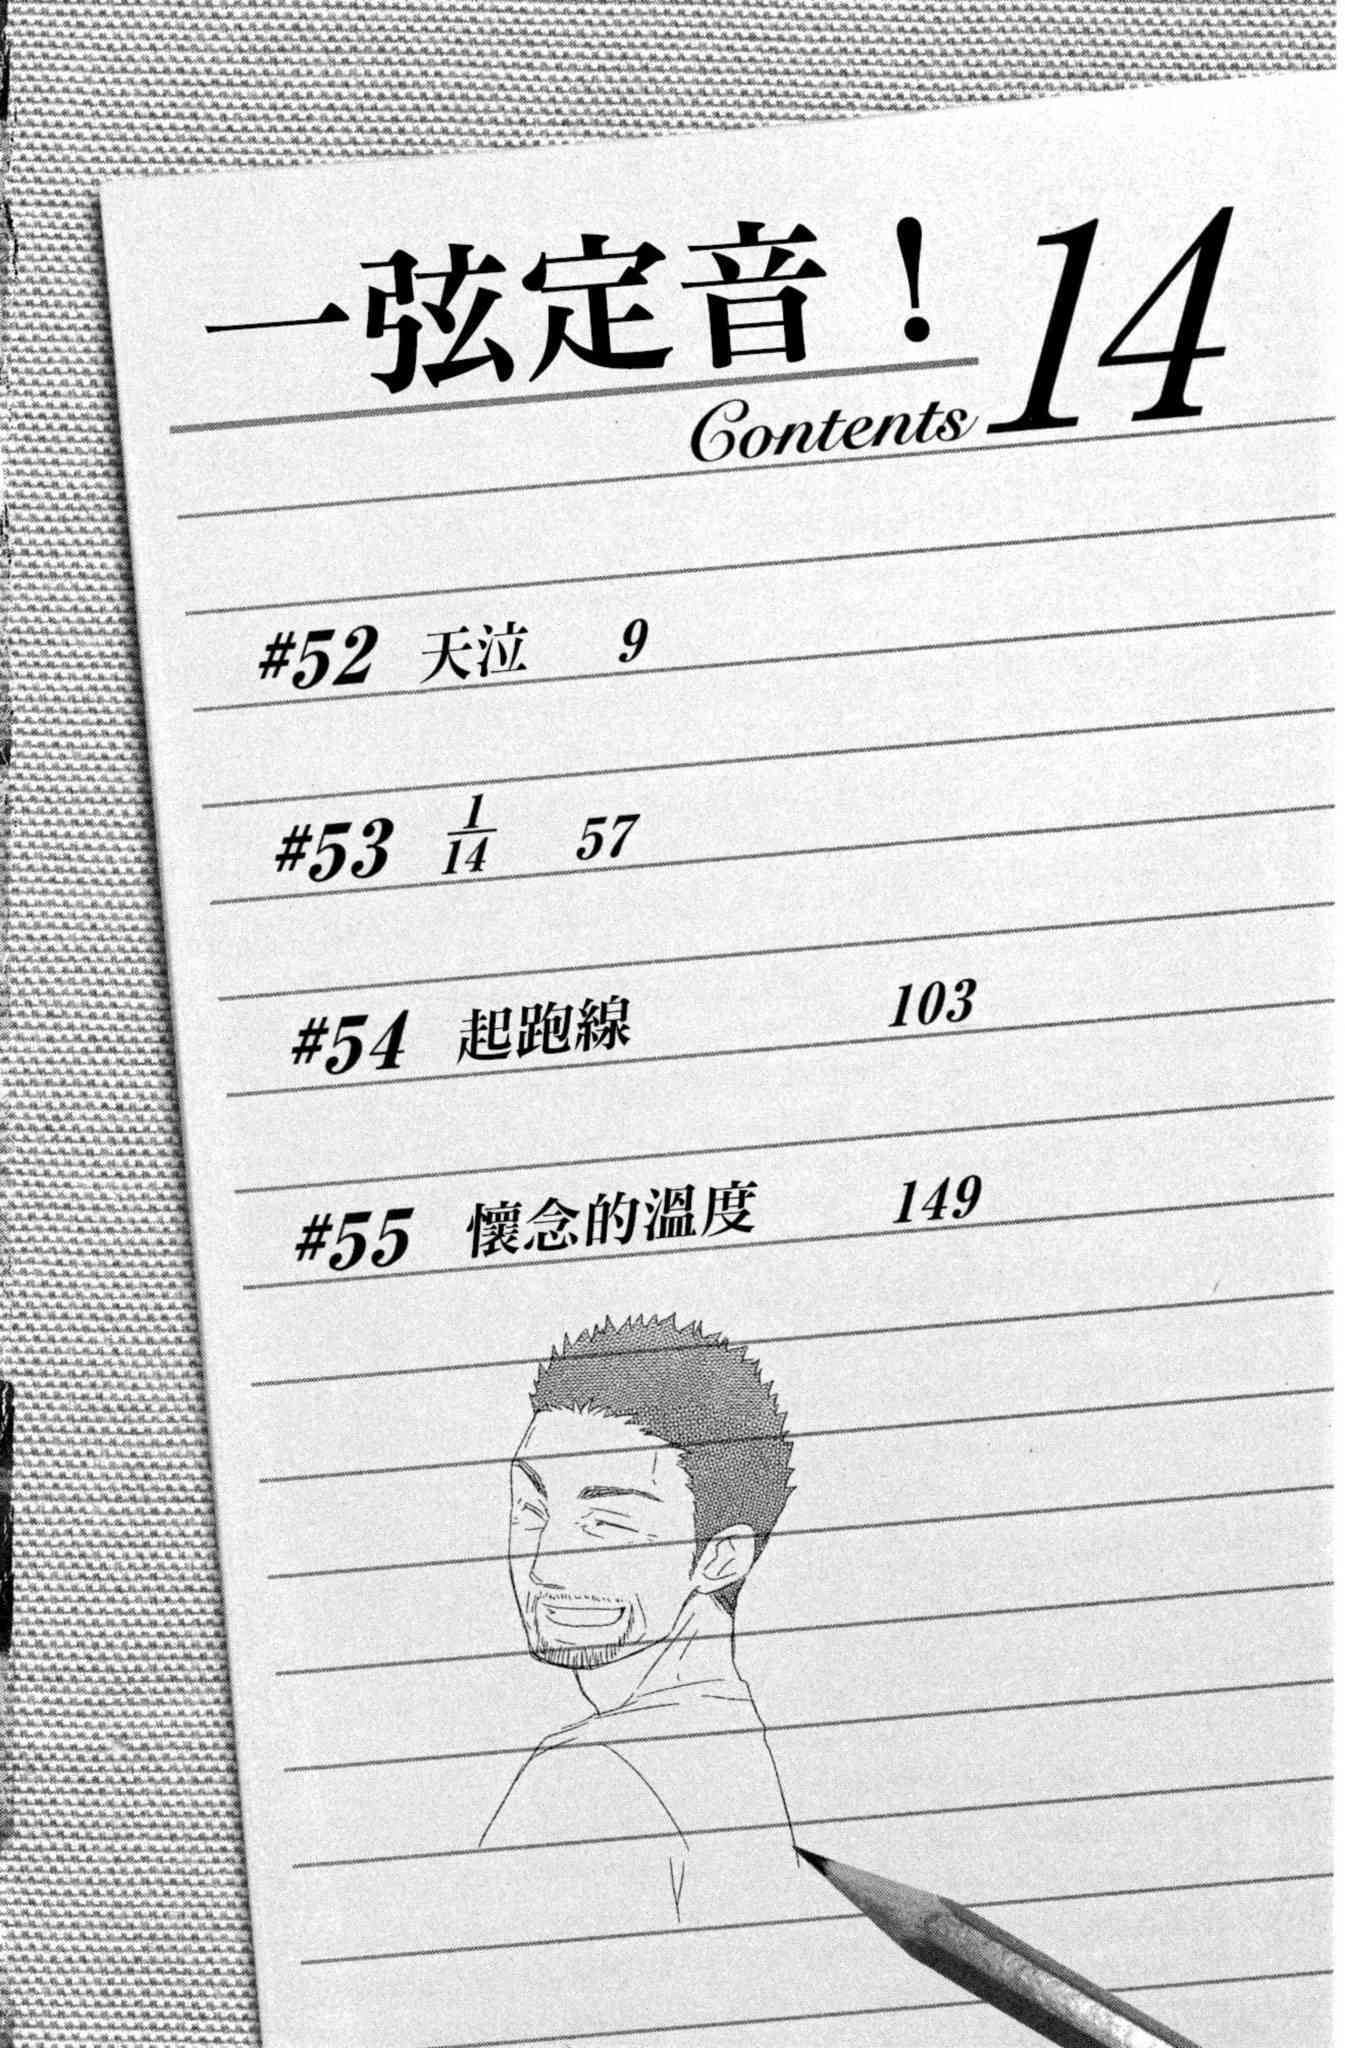 一弦定音！14
Contents
#52 天泣 9
#53 1/14 57
#54 起跑線 103
#55 懷念的溫度 149